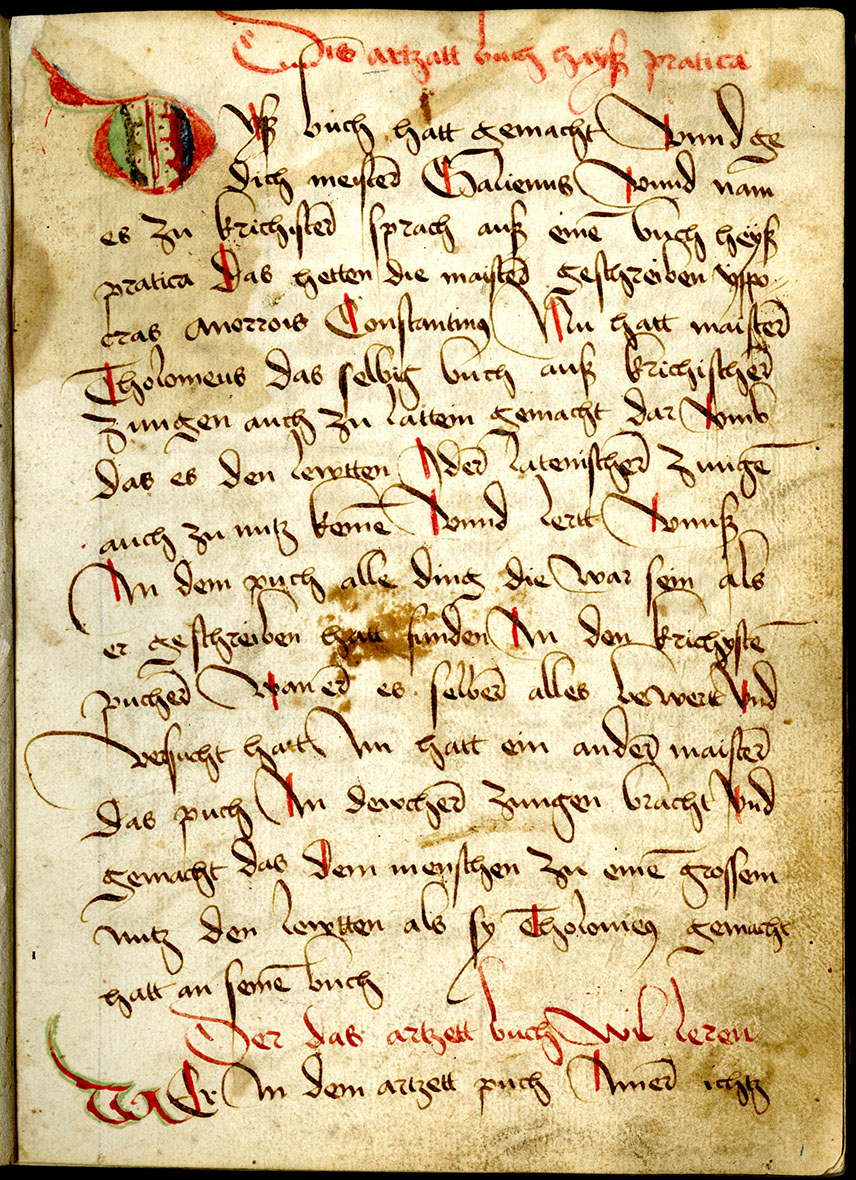 Diß artzatt buch hayß pratica
Dyß buch hatt gemacht Vnnd ge
dich meister Galienus Vnnd nam
es zu krichister sprach auß eine buch heyß
pratica Das hetten die maister geschreiben ypo-
cras Auorrois Constantinus Nu hatt maister
Tholomeus das selbig buch auß krichischer
Zungen auch zu lattein gemacht dar Vmb
das es den lewtten Ader latenischer zunge
auch zu nutz keme Vnnd lertt Vnnß
In dem puch alle ding die War sein als
er geschreiben hatt funden In den krichyste
pucher Wan er es selber alles beWert Vnd
Versucht hatt Nu hatt ein ander maister
das puch In dewcher zungen bracht Vnd
gemacht das dem menschen zu eine grossem
nutz den lewtten als sy Tholomeus gemacht
hatt an seine buch
Der das artzett buch Wil leren
WEr In dem artzett puch Ymer ichtz